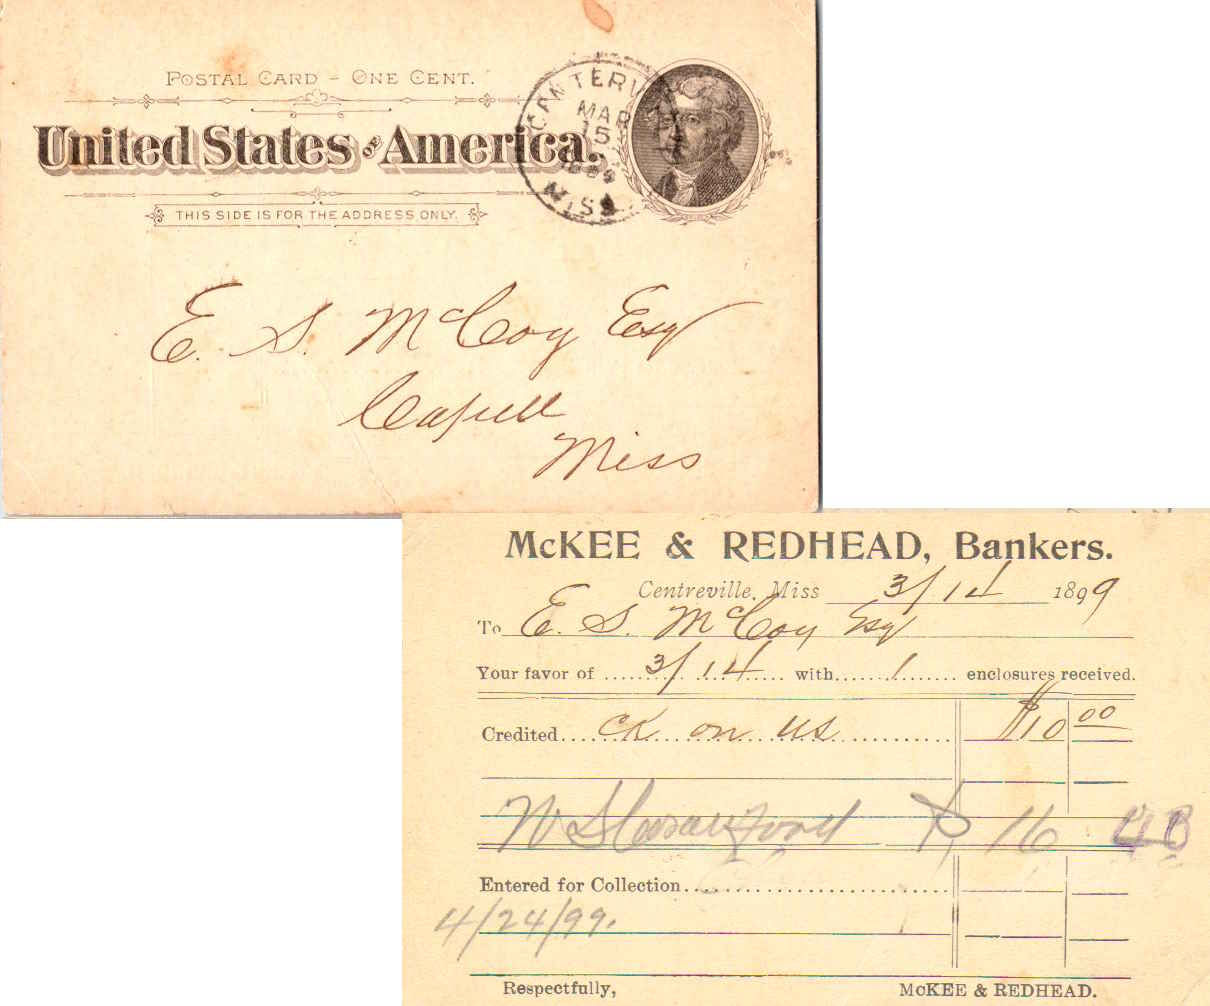 POSTAL CARD – ONE CENT.
United States OF America.
THIS SIDE IS FOR THE ADDRESS ONLY.
MAR
15
MISS
E. S. McCoy Esq
Capell
Miss
McKEE & REDHEAD, Bankers.
Centreville, Miss 3/14 1899
To E. S. McCoy Esq
Your favor of 3/14 with 1 enclosures received.
Credited ck on us $10 00
W S Crawford P. 16
Entered for Collection
4/24/99.
Respectfully, McKEE & REDHEAD.